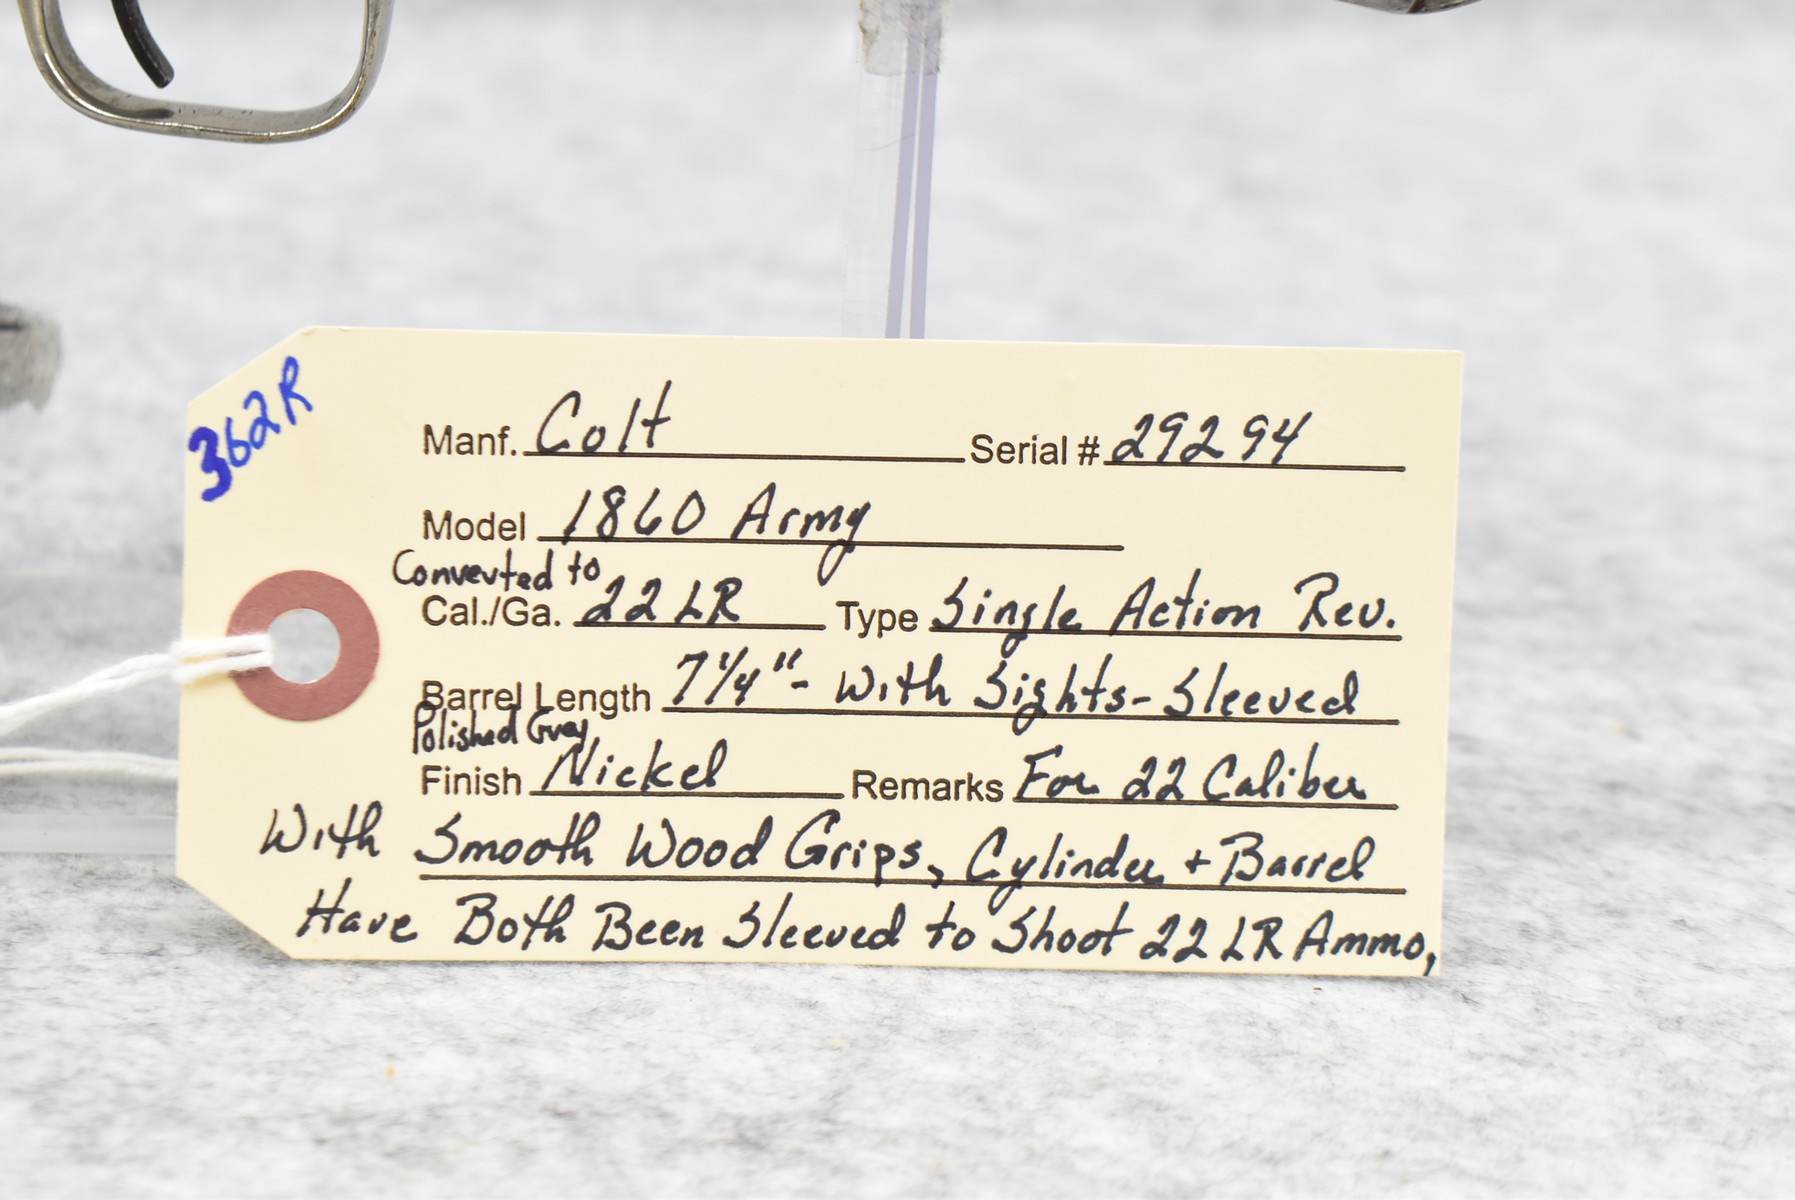 362R
Manf. Colt Serial # 29294
Model 1860 Army
Converted to
Cal./Ga. 22 LR Type Single Action Rev.
Barrel Length 7 1/4" - With Sights - Sleeved
Polished Grey
Finish Nickel Remarks For 22 Caliber
With Smooth Wood Grips, Cylinder + Barrel
Have Both Been Sleeved to Shoot 22 LR Ammo,